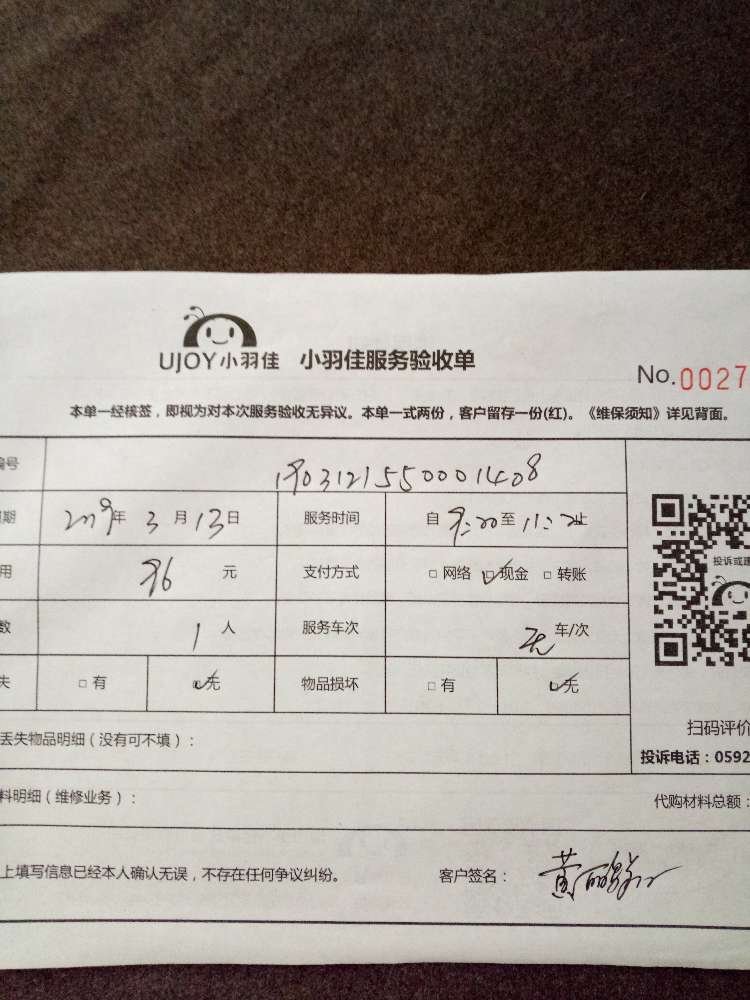 UJOY小羽佳 小羽佳服务验收单
No.0027
本单一经核签，即视为对本次服务验收无异议。本单一式两份，客户留存一份(红)。《维保须知》详见背面。
编号 1903121555000 1408
期 2019年 3 月 13 日 服务时间 自 9:20 至 11:
用 96 元 支付方式 □ 网络 ☑ 现金 □ 转账
投诉或建
数 1 人 服务车次 无 车/次
失 □ 有 ☑ 无 物品损坏 □ 有 ☑ 无
扫码评价
丢失物品明细（没有可不填）：
投诉电话：0592
料明细（维修业务）： 代购材料总额：
上填写信息已经本人确认无误，不存在任何争议纠纷。 客户签名： 黄丽